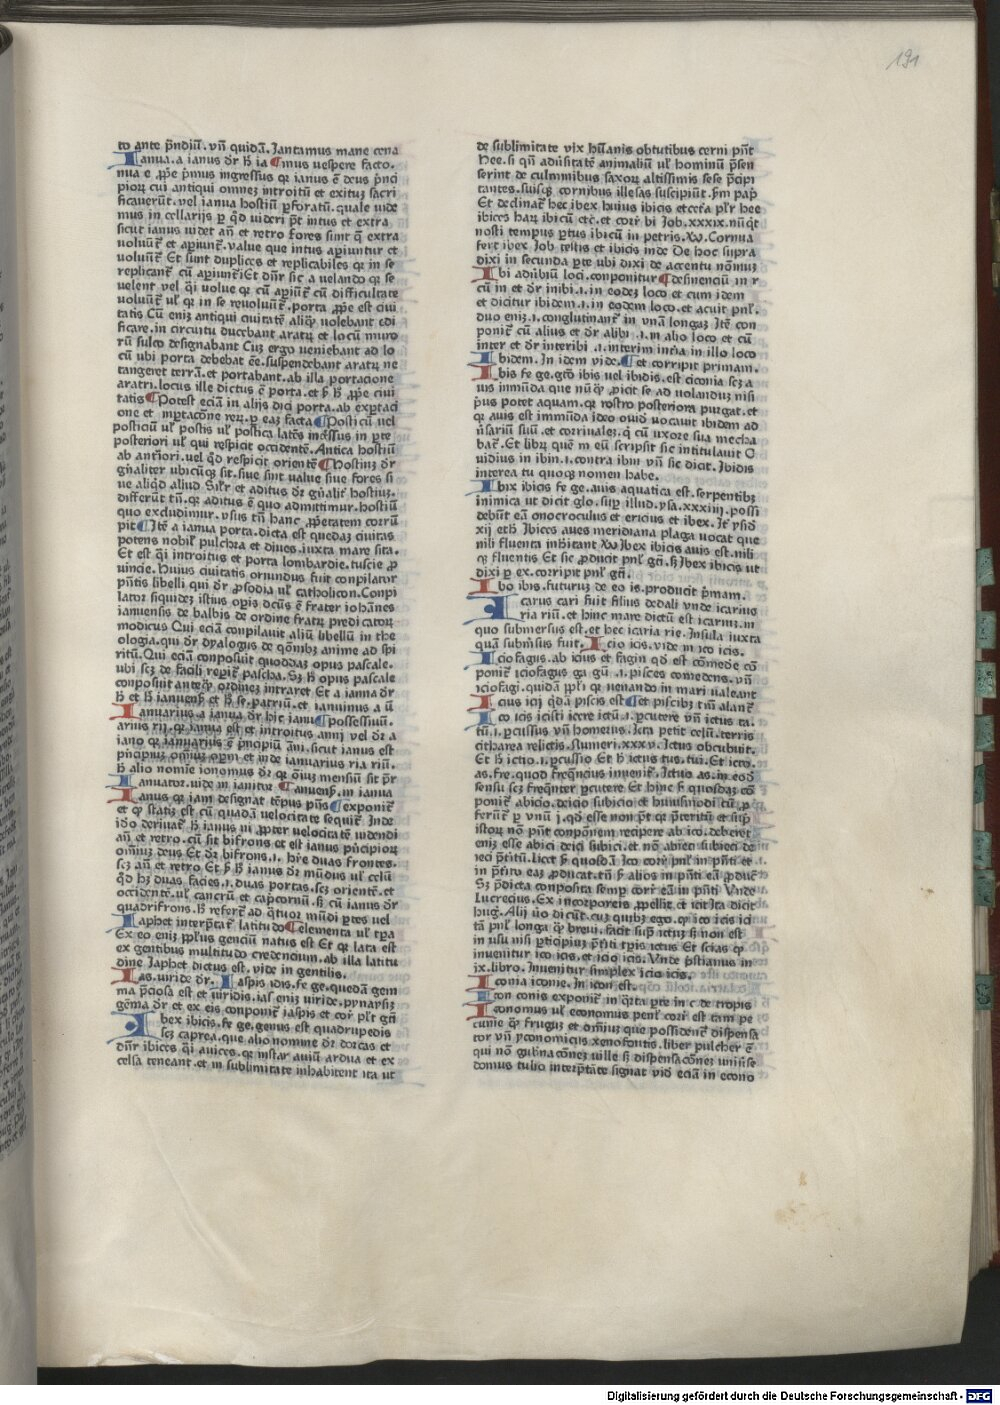 191
to ante prandiū. vn̄ quidā. Jantamus mane cena
Ianua. a ianus dr̄ h̄ ia ¶mus uespere facto.
nua e ꝓpe pͥmus ingressus qꝛ ianus ē deus pͥnci
pioꝝ cui antiqui omneꝫ introitū et exituꝫ sacri
ficauerūt. vel ianua hostiū ꝑforatū. quale uide
mus in cellarijs ꝑ qd̄ uideri pn̄t intus et extra
sicut ianus uidet an̄ et retro fores sunt q̄ extra
voluūt̄ et apiunt̄. value que intus apiuntur et
voluūt̄ Et sunt duplices et replicabiles qꝛ in se
replicant̄ cū apiunt̄ Et dn̄r sic a uelando qꝛ se
uelent vel qͥ volue qꝛ cū apiūt̄ cū difficultate
voluūt̄ ul̓ qꝛ in se reuoluūt̄. porta ꝓpe est ciui
tatis Cū eniꝫ antiqui ciuitatē aliqͣ uolebant edi
ficare. in circuitu ducebant aratꝝ et locū muro
rū sulco designabant Cuꝫ ergo ueniebant ad lo
cū ubi porta debebat ēe. suspendebant aratꝝ ne
tangeret terrā. et portabant. ab illa portacione
aratri. locus ille dictus ē porta. et ꝓ h̄ ꝓpe ciui
tatis ¶Potest eciā in alijs dici porta. ab exportaci
one et inportacōne reꝝ. ꝑ eaꝫ facta ¶Posticū uel
posticiū ul̓ postis ul̓ postica latēs ingressus in ꝑte
posteriori ul̓ qui respicit occidentē. Antica hostiū
ab anteriori. uel qd̄ respicit orientē ¶Hostiuꝫ dr̄
gn̄aliter ubicūqꝫ sit. siue sint value siue fores si
ue aliqd̄ aliud Silr̄ et aditus dr̄ gn̄alit̄ hostiuꝫ.
differūt tn̄. qꝛ aditus ē quo admittimur. hostiū
quo excludimur. vsus tn̄ hanc ꝓprietatem corrū
pit ¶Itē a ianua porta. dicta est quedaꝫ ciuitas
potens nobil̓ pulchra et diues. iuxta mare sita.
Et est qͥ introitus et porta lombardie. tuscie ꝓ
uincie. Huius ciuitatis oriundus fuit conpilator
pn̄tis libelli qui dr̄ ꝓsodia ul̓ catholicon. Conpi
lator siquideꝫ istius opis dcūs ē frater iohānes
ianuensis de balbis de ordine fratꝝ predicatoꝝ
modicus Qui eciā conpilauit aliū libellū in the
ologia. qui dr̄ dyalogus de qōnibꝫ anime ad spi
ritū. Qui eciā conposuit quoddaꝫ opus pascale.
ubi scꝫ de facili repit̄ pascha. Sꝫ h̄ opus pascale
conposuit anteqͣ ordineꝫ intraret Et a ianua dr̄
h̄ et h̄ ianuensis et h̄ se. patriū. et ianuinus a ū
Ianuarius. a ianua dr̄ hic ianu ¶possessiuū.
arius rij. qꝛ ianua est et introitus anni vel dr̄ a
iano qꝛ ianuarius ē pͥncipiū āni. sicut ianus est
pͥncipiuꝫ omīuꝫ opꝝ et inde ianuarius ria riū.
h̄ alio nomīe ionomus dr̄ qꝛ om̄iuꝫ mensiū sit pr̄
Ianuator. uide in ianitor ¶anuensis. in ianua
Ianus qꝛ iam designat tēpus pn̄s ¶exponit̄
et qꝫ statiꝫ est cū quadā velocitate sequit̄ Inde
ido deriuat̄ h̄ ianus ni ꝓpter velocitatē uidendi
an̄ et retro. cū sit bifrons et est ianus pͥncipioꝝ
omīuꝫ deus Et dr̄ bifrons. i. hn̄s duas frontes.
scꝫ an̄ et retro Et ꝑ h̄ ianus dr̄ mūdus ul̓ celū
qd̄ hꝫ duas facies. i. duas portas. scꝫ orientē. et
occidentē. ul̓ cancrū et capcornū. sꝫ cū ianus dr̄
quadrifrons. h̄ refert̄ ad qͣtuor mūdi ꝑtes uel
Iaphet interptat̄ latitudo ¶elementa ul̓ tꝑa
Ex eo eniꝫ ppl̓us genciū natus est Et qꝛ lata est
ex gentibus multitudo credencium. ab illa latitu
dine Japhet dictus est. vide in gentilis.
Ias. uiride dr̄. Iaspis idis. fe ge. quedā gem
ma p̄ciosa est et uiridis. ias eniꝫ uiride. pynaysiꝫ
gēma dr̄ et ex eis conponit̄ iaspis et corꝛ pl̓r gn̄
Ibex ibicis. fe ge. genus est quadrupedis
scꝫ caprea. que alio nomine dr̄ dorcas et
dn̄r ibices qͥ auices. qꝛ instar auiū ardua et ex
celsa teneant. et in sublimitate inhabitent ita ut
de sublimitate vix hūanis obtutibus cerni pn̄t
Hee. si qn̄ aduersitatē animaliū ul̓ hominū p̄sen
serint de culminibus saxoꝝ altissimis sese p̄cipi
tantes. suisqꝫ cornibus illesas suscipiūt. ꝓm pap̄
Et declinat̄ hec ibex huius ibicis et cetera pl̓r hee
ibices haꝝ ibicū etc̄. et corꝛ bi Job. xxxix. nūqͥt
nosti tempus ꝑtus ibicū in petris. Xv. Cornua
fert ibex Job tellis et ibicis inde De hoc supra
dixi in secunda ꝑte ubi dixi de accentu nōinuꝫ
Ibi aduerbiū loci. conponitur ¶desinenciū in r
cū in et dr̄ inibi. i. in eodeꝫ loco et cum idem
et dicitur ibidem. i. in eodem loco. et acuit pnl̓.
duo eniꝫ. i. conglutinant̄ in vnā longaꝫ Itē con
ponit̄ cū alius et dr̄ alibi .i. in alio loco et cū
inter et dr̄ interibi .i. interim intra in illo loco
Ibidem. In idem vide. ¶et corripit primam.
Ibis fe ge. grō ibis uel ibidis. est ciconia scꝫ a
uis inmūda que nūqͣ ꝓicit se ad uolanduꝫ nisi
pͥus potet aquam. qꝛ rostro posteriora purgat. et
qꝛ auis est immūda ideo ouid̓ uocauit ibidem ad
ūsariū suū. et corriualeꝫ. qͥ cū uxore sua mecha
bat̄. Et libꝝ quē in eū scripsit sic intitulauit O
uidius in ibin. i. contra ibin vn̄ sic dicit. Ibidis
interea tu quoqꝫ nomen habe.
Ibix ibicis fe ge. auis aquatica est. serpentibꝫ
inimica ut dicit glo. suꝑ illud. ysa. xxxiiij. possi
debūt eā onocroculus et ericius et ibex. It̄ ysid̓
xij eth̄ Ibices aues meridiana plaga uocat que
nili fluenta inhabitant Xv Ibex ibicis auis est. nili
qꝫ fluentis Et sic ꝓducit pnl̓ gn̄i. sꝫ ibex ibicis ut
dixi ꝑ ex. corripit pnl̓ gn̄i.
Ibo ibis. futuruꝫ de eo is. producit pͥmam.
Icarus cari fuit filius dedali vnde icarius
ria riū. et hinc mare dictū est icariuꝫ. in
quo submersus est. et hec icaria rie. Insula iuxta
quā submersus fuit. Icio icis. vide in ico icis.
Iciofagus. ab icius et fagin qd̄ est comede cō
ponit̄ iciofagus ga gū .i. pisces comedens. vn̄
iciofagi. quidā ppl̓i qꝛ uenando in mari ualeant
Icius icij qdā piscis est ¶et piscibꝫ tm̄ alant̄
Ico icis icisti icere ictū. i. ꝑcutere vn̄ ictus ta.
tū. i. ꝑcussus vn̄ homerus. Icta petit celū. terris
citharea relictis. Numeri. xxxv. Ictus obcubuit.
Et h̄ ictio. i. ꝑcussio Et h̄ ictus tus. tui. Et icto.
as. fre. quod freqn̄cius inuenit̄. Ictuo as. in eod̄
sensu scꝫ freqn̄ter ꝑcutere Et hinc ꝑ quosdaꝫ cō
ponit̄ abicio. deicio subicio et huiusmōdi cū ꝑ
ferūt̄ ꝑ vnū j. qd̄ esse non pōt qꝛ p̄teritū et sup̄
istoꝝ nō pn̄t conponem recipere ab ico. deberet
eniꝫ esse abici deici subici. et nō abieci subieci de
ieci p̄titū. licet ꝑ quosdā Ico corꝛ pnl̓ in pn̄ti et
in p̄tito eaꝫ ꝓducat. tn̄ ꝑ alios in pn̄ti eā ꝓduc̄
Sꝫ p̄dicta conposita semꝑ corꝛ eā in pn̄ti Vnde
Lucrecius. Ex incorporeis. ꝓpellit. et icit Ita dicit
hug. Alij uo dicūt. cuꝫ quibꝫ ego. qꝫ ico icis ici
tā pnl̓ longa qͣ breui. facit sup̄ ictuꝫ sꝫ non est
in usu nisi ꝑticipiuꝫ p̄titi tꝑis ictus Et scias qꝫ
inuenitur ico icis. et icio icis. Vnde pͥstianus in
ix. libro. Inuenitur simplex icio icis.
Iconia iconie. In icon est.
Icon conis exponit̄ in qͣrta ꝑte in c de tropis
Iconomus ul̓ economus penl̓ corꝛ est tam pe
cunie qͣ frugꝫ et om̄iuꝫ que possident̄ dispensa
tor vn̄ yconomicus xenofontis. liber pulcher ē
qui nō gub̄nacōneꝫ uille sꝫ dispensacōneꝫ uniūse
domus tulio interptāte signat vid̓ eciā in econo
Digitalisierung gefördert durch die Deutsche Forschungsgemeinschaft - DFG